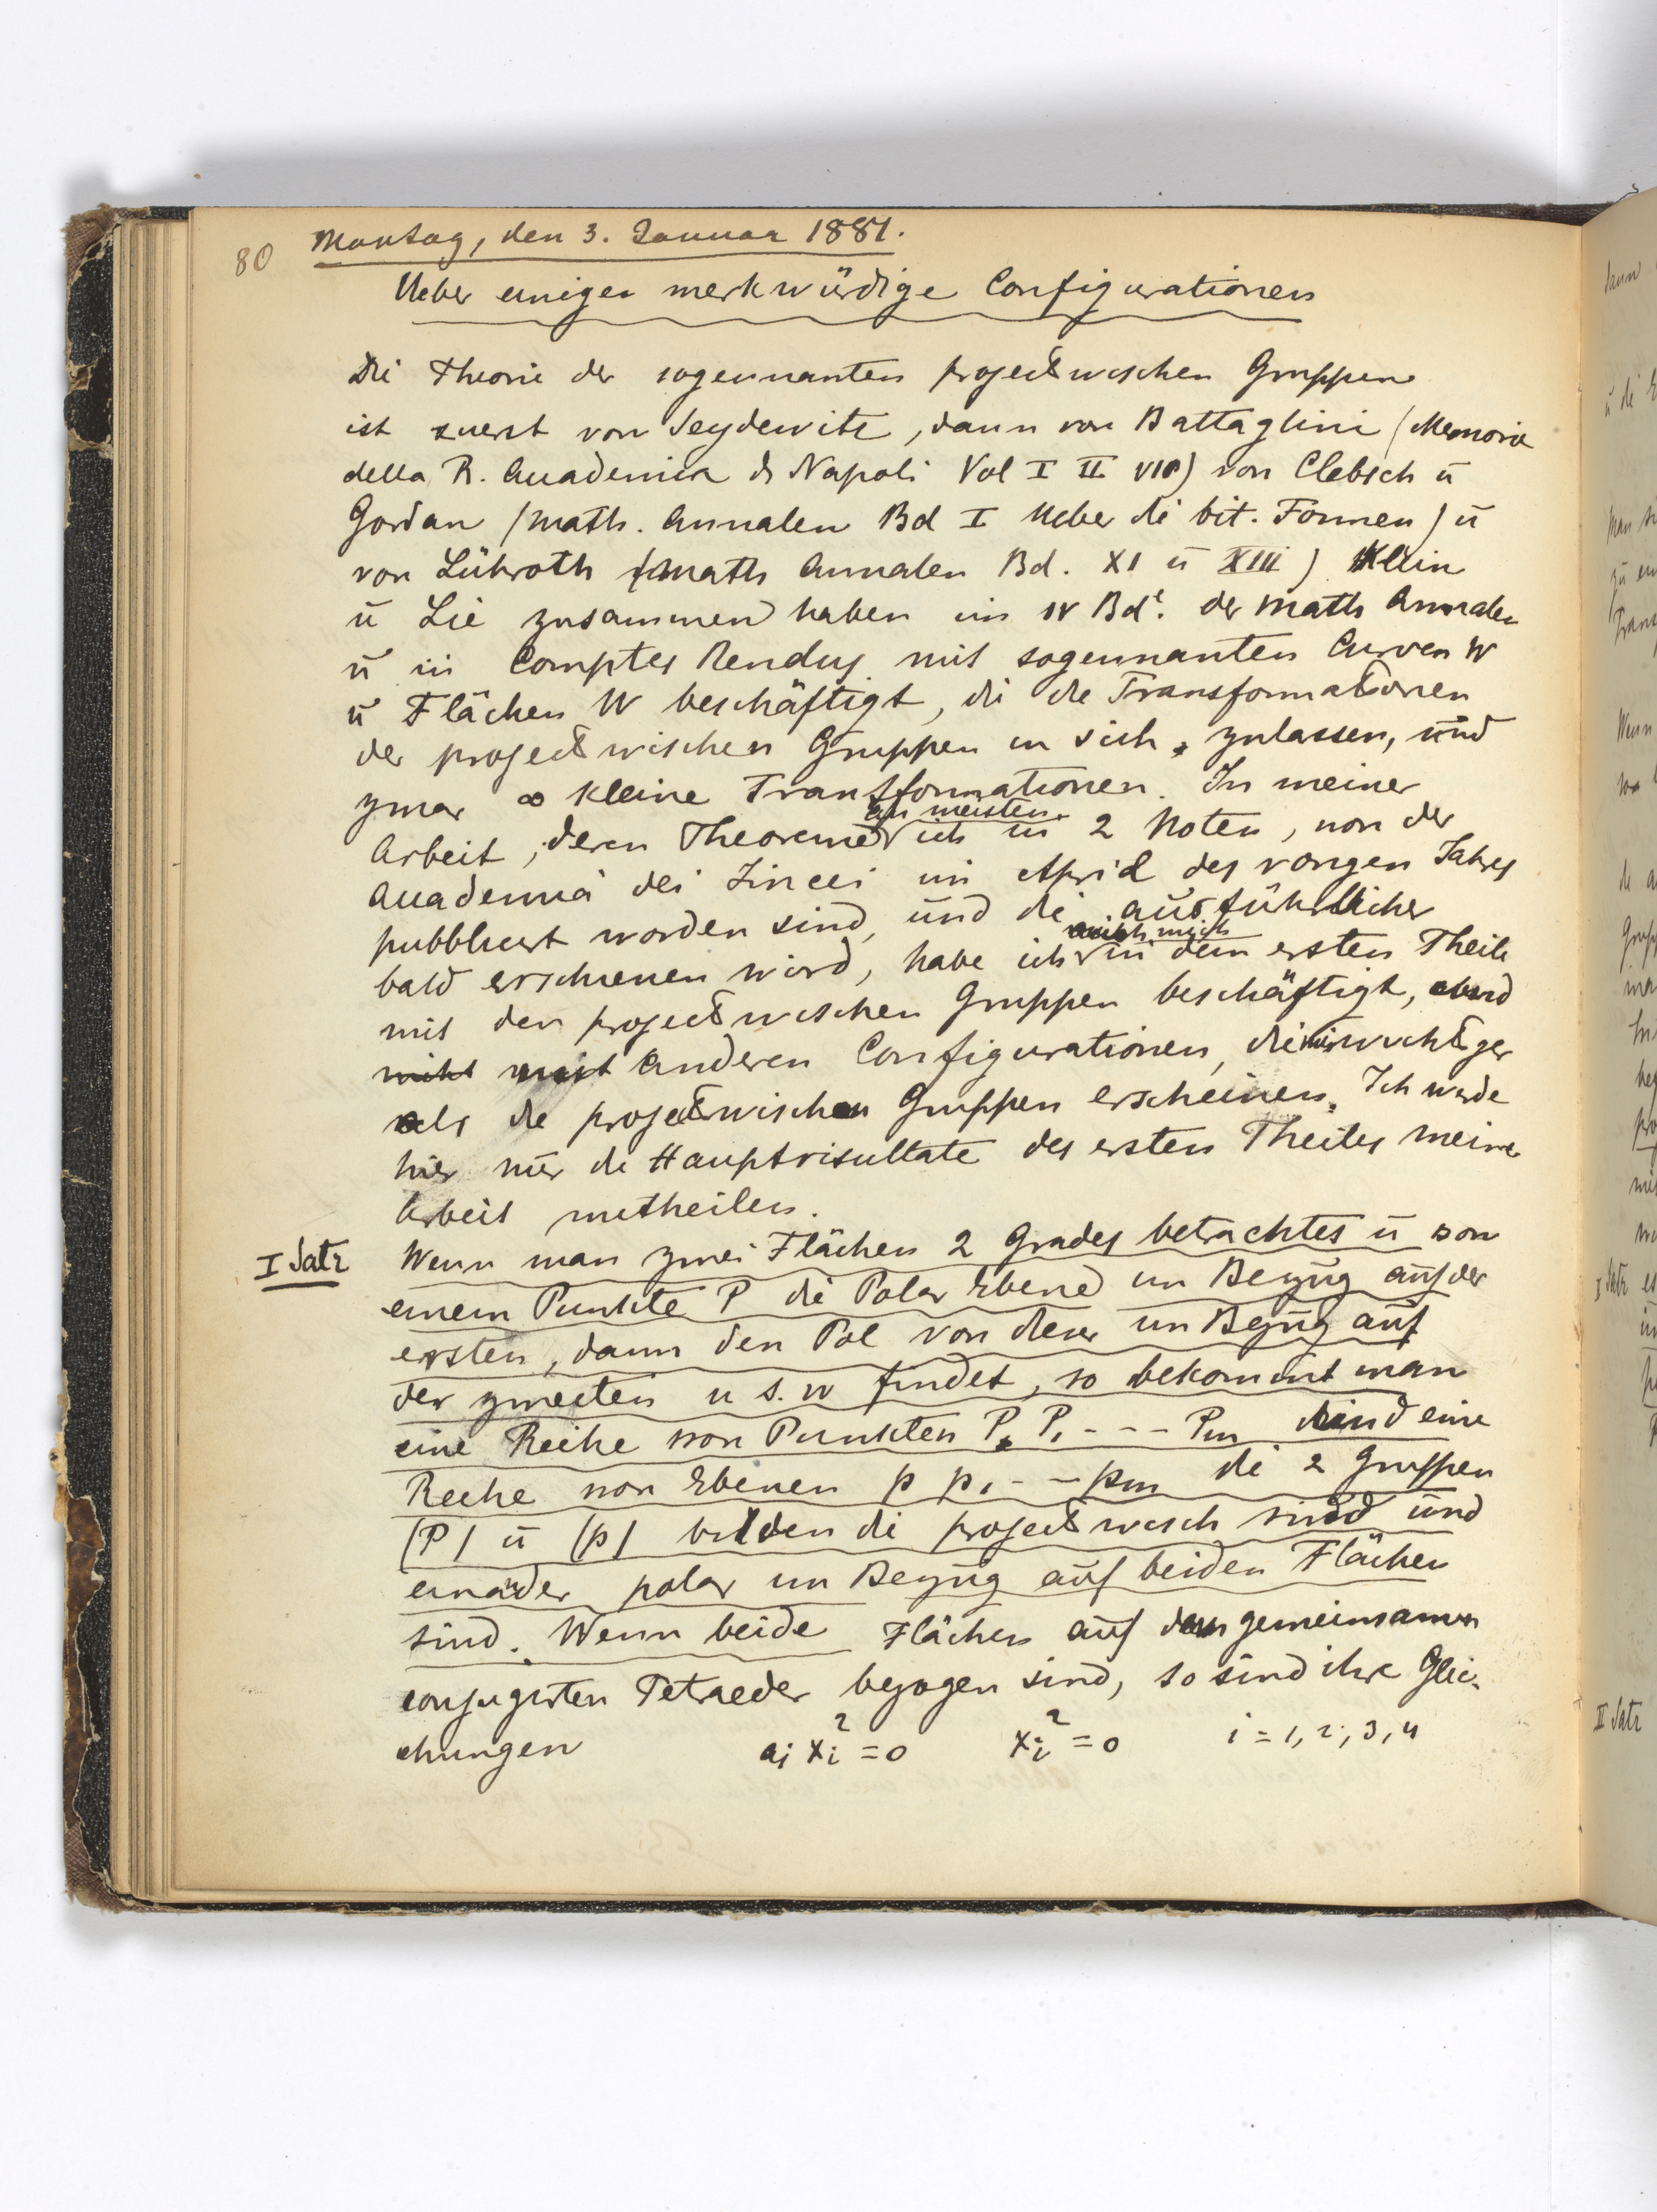 80 Montag, den 3. Januar 1881.
Ueber einigen merkwürdige Configurationen
Die Theorie der sogennanten projectivischen Gruppen
ist zuerst von Seydewitz, dann von Battaglini (Memorie
della R. Accademia di Napoli Vol I II VII) von Clebsch ū
Gordan (Math. Annalen Bd I Ueber die bit. Formen) ū
von Lühroth (Math Annalen Bd. XI ū XIII) Klein
ū Lie zusammen haben im IV Bde. der Math Annalen
ū in Comptes Rendus mit sogennanten Curven W
ū Flächen W beschäftigt, die die Transformationen
der projectivischen Gruppen in sich zulassen, und
zwar ∞ kleine Transformationen. In meiner
am meisten
Arbeit, deren Theoreme ich in 2 Noten, von der
Accademia dei Lincei im April des vorigen Jahres
pubblicert worden sind, und die ausführlicher
mich
bald erschienen wird, habe ich in dem ersten Theile
mit den projectivischen Gruppen beschäftigt,
nicht mit anderen Configurationen, die mir wichtiger
als die projectivischen Gruppen erscheinen. Ich werde
hier nur die Hauptrisultate des ersten Theiles meiner
Arbeit mitheilen.
I Satz Wenn man zwei Flächen 2 Grades betrachtes ū von
einem Punkte P die Polar Ebene im Bezug auf der
ersten, dann den Pol von dieser im Bezug auf
der zweiten u s. w findet, so bekommt man
eine Reihe von Punkten P, P1 --- Pm und eine
Reihe von Ebenen p p1 -- pm die 2 Gruppen
(P) ū (p) bilden die projectivisch sind und
einander polar im Bezug auf beiden Flächen
sind. Wenn beide Flächen auf dem gemeinsamen
conjugirten Tetraeder bezogen sind, so sind ihre Glei-
chungen ai xi² = 0 xi² = 0 i = 1, 2, 3, 4